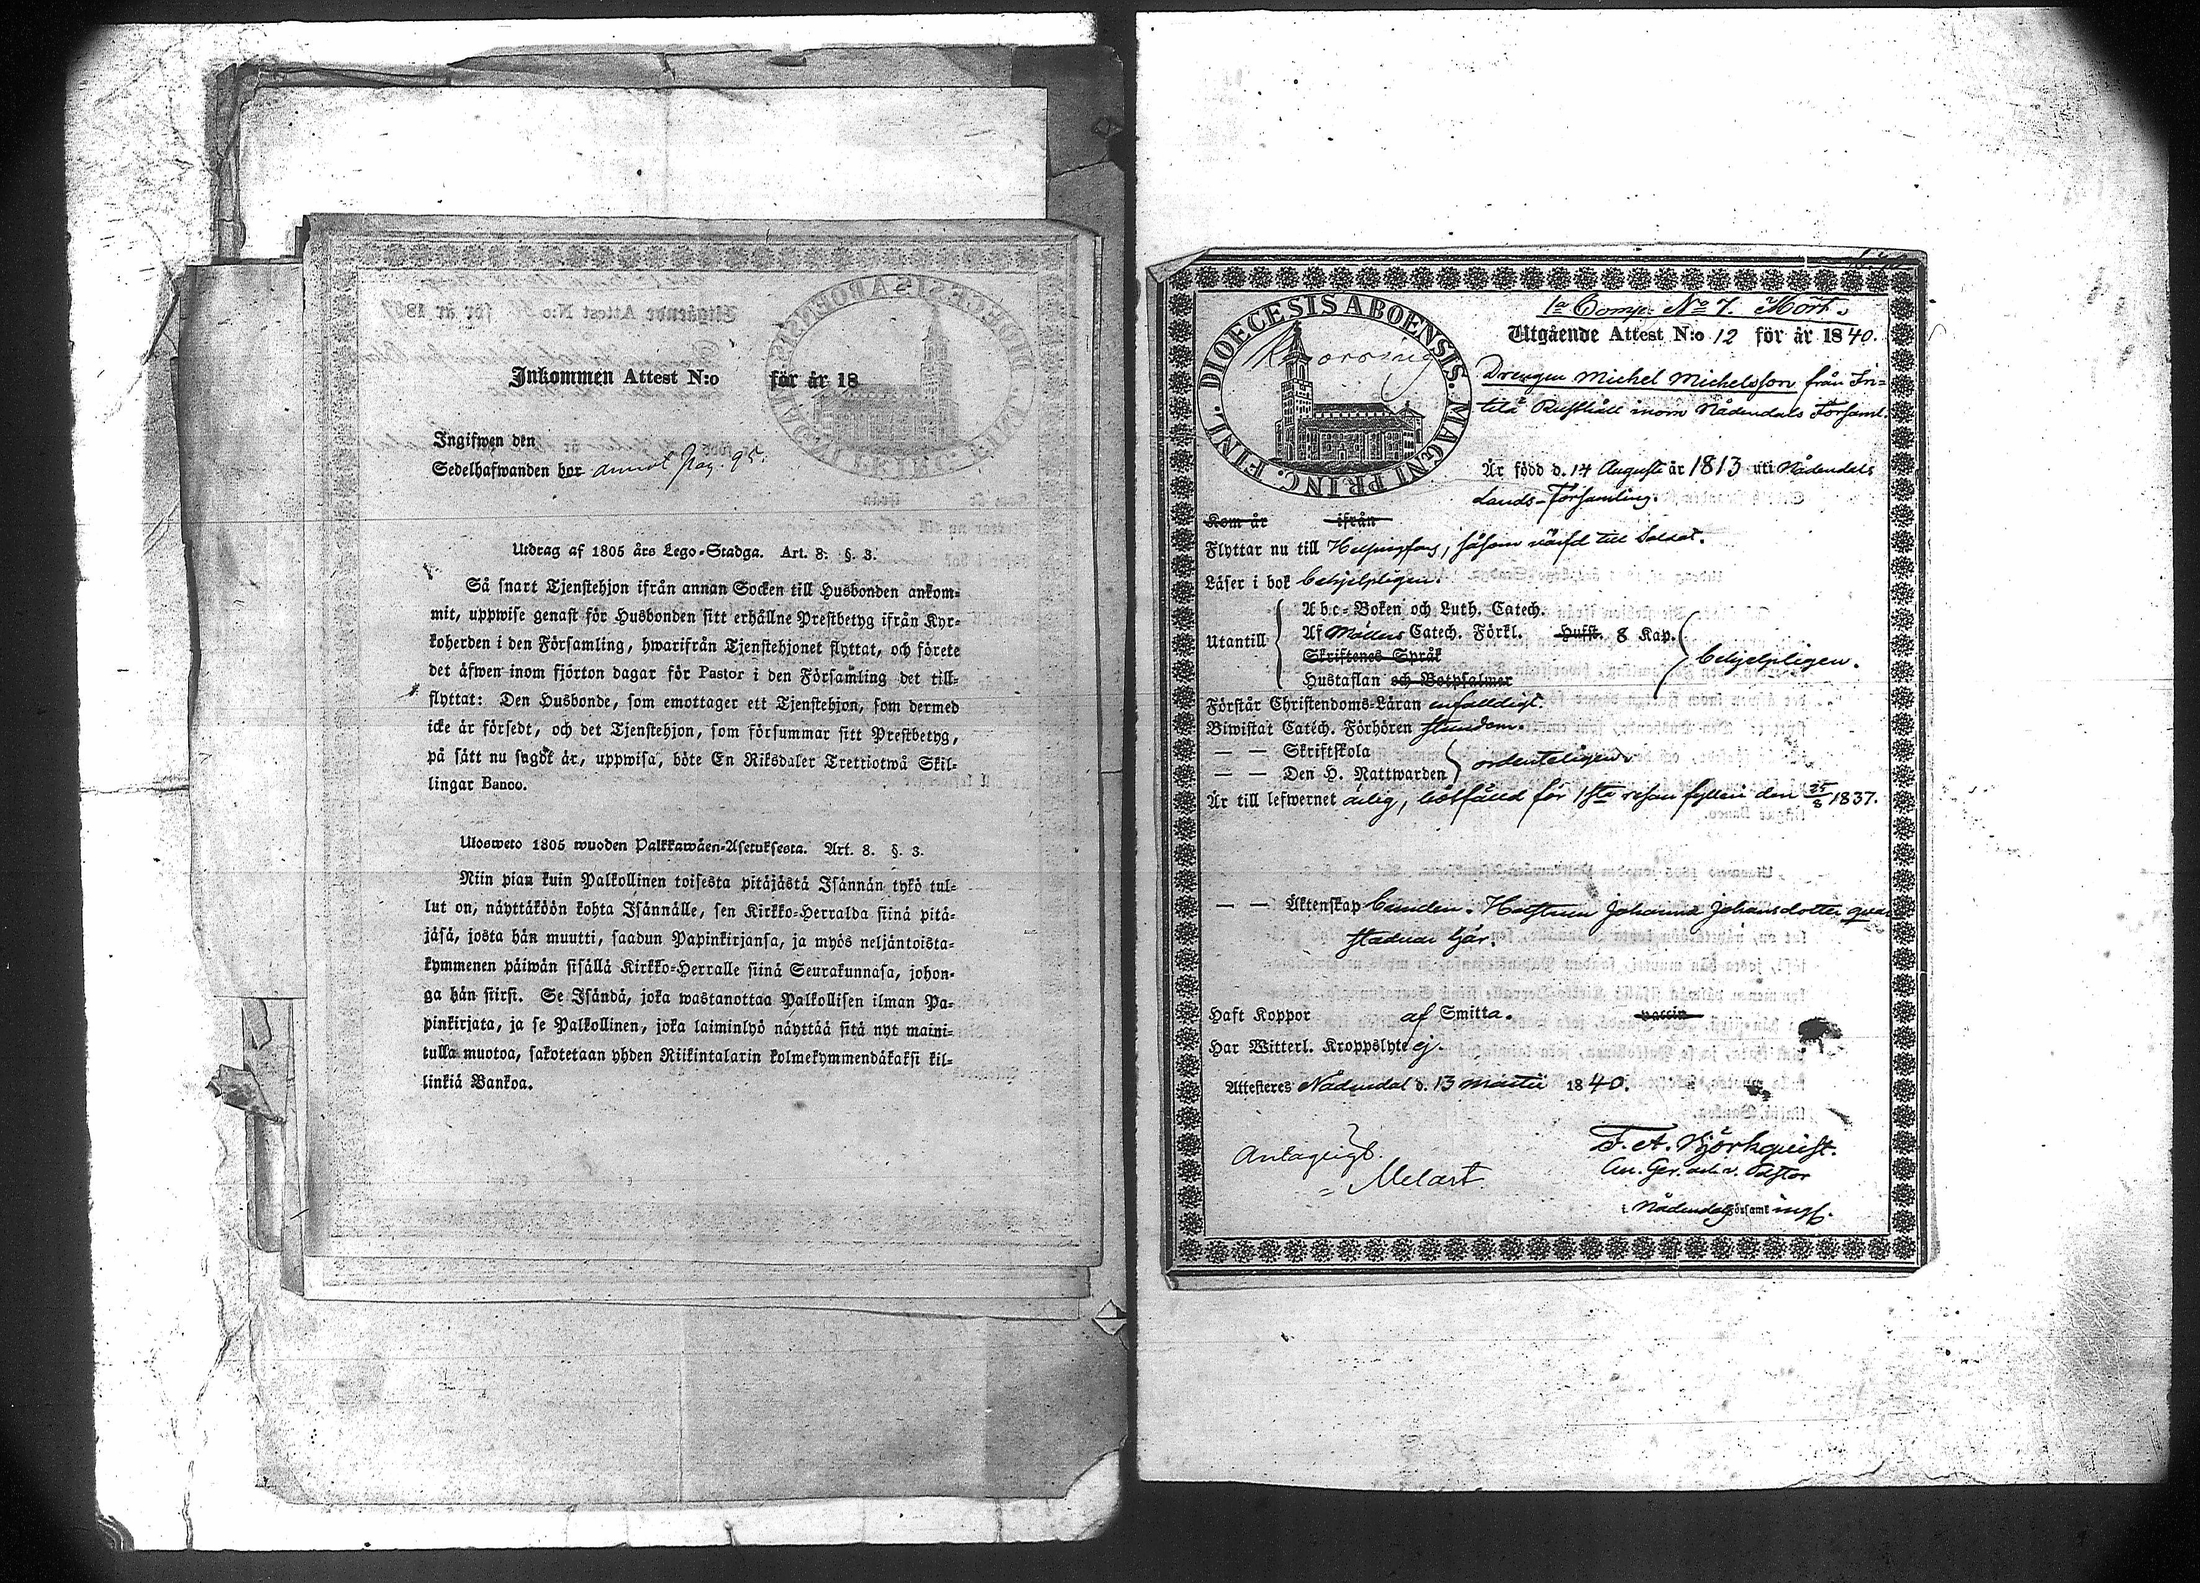 Inkommen Attest N:o för år 18
Ingifwen den
Sedelhafwanden bor annot Pag. 95.
Utdrag af 1805 års Lego-Stadga. Art. 8. §. 3.
Så snart Tjenstehjon ifrån annan Socken till Husbonden ankom-
mit, uppwise genast för Husbonden sitt erhållne Prestbetyg ifrån Kyr-
koherden i den Församling, hwarifrån Tjenstehjonet flyttat, och förete
det äfwen inom fjorton dagar för Pastor i den Församling det till-
flyttat: Den Husbonde, som emottager ett Tjenstehjon, som dermed
icke är försedt, och det Tjenstehjon, som försummar sitt Prestbetyg,
på sätt nu sagdt är, uppwisa, böte En Riksdaler Trettiotwå Skil-
lingar Banco.
Ulosweto 1805 wuoden Palkkawäen-Asetuksesta. Art. 8. §. 3.
Niin pian kuin Palkollinen toisesta pitäjästä Isännän tykö tul-
lut on, näyttäköön kohta Isännälle, sen Kirkko-Herralda siinä pitä-
jäsä, josta hän muutti, saadun Papinkirjansa, ja myös neljäntoista-
kymmenen päiwän sisällä Kirkko-Herralle siinä Seurakunnasa, johon-
ga hän siirsi. Se Isändä, joka wastanottaa Palkollisen ilman Pa-
pinkirjata, ja se Palkollinen, joka laiminlyö näyttää sitä nyt maini-
tulla muotoa, sakotetaan yhden Riikintalarin kolmekymmendäkaksi kil-
linkiä Bankoa.
DIOECESIS ABOENSIS. MAGNI PRINC. FINL.
1a Comp. No 7. Mört.
Utgående Attest N:o 12 för år 1840.
Drengen Michel Michelsson från Fri-
telä Rusthåll inom Nådendals Församl.
Är född d. 14 Augusti år 1813 uti Nådendals
Lands-Församling.
Kom år ifrån
Flyttar nu till Helsingfors, såsom värfd till Soldat.
Läser i bok behjelpligen.
Utantill
Abc-Boken och Luth. Catech.
Af Möllers Catech. Förkl. Hufst. 8 Kap.
Skriftenes Språk
Hustaflan och Botpsalmer
behjelpligen.
Förstår Christendoms-Läran enfaldigt.
Biwistat Catech. Förhören stundom.
— — Skriftskola
— — Den H. Nattwarden
ordenteligen.
Är till lefwernet ärlig, bötfälld för 1sta resan fylleri den 25/8 1837.
— — Äktenskap bunden. Hustrun Johanna Johansdotter qvar
stadnar här.
Haft Koppor af Smitta. vaccin
Har Witterl. Kroppslyte ej.
Attesteres Nådendal d. 13 Martii 1840.
F. A. Björkqvist.
Pastor
i Nådendals församl ingf.
Antagligt.
Melart